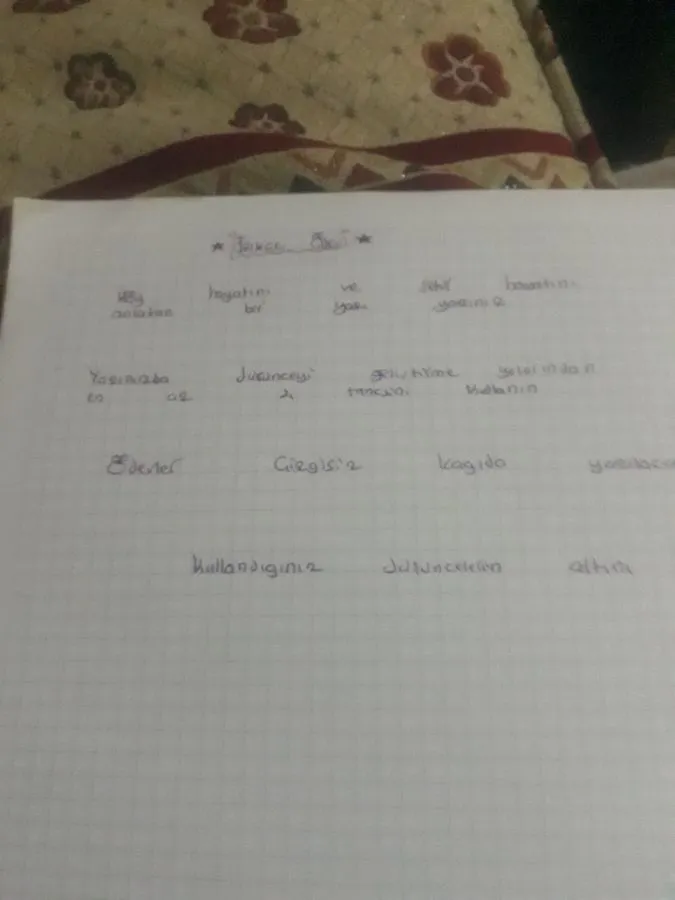 hayatını ve şehir hayatını
anlatan bir yazı yazınız
Yazınızda düşünceyi geliştirme yollarından
en az 2 tanesini kullanın
Ödevler Çizgisiz kağıda
Kullandığınız düşüncelerin altını